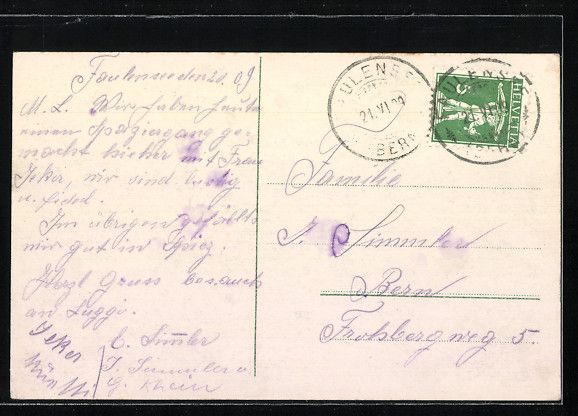 Faulensee den 20. 09
M. L. Wir haben heute
einen Spaziergang ge-
macht hieher mit Frau
Jeker, wir sind lustig
u. fidel.
Im übrigen gefällts
mir gut in Spiez.
Herzl Gruss bes. auch
an Luggi.
Jeker
E. Simmler
J. Simmler
G.
FAULENSEE
21.VI.09
BERN
HELVETIA
5
Familie
J. Simmler
Bern
Frohbergweg 5.